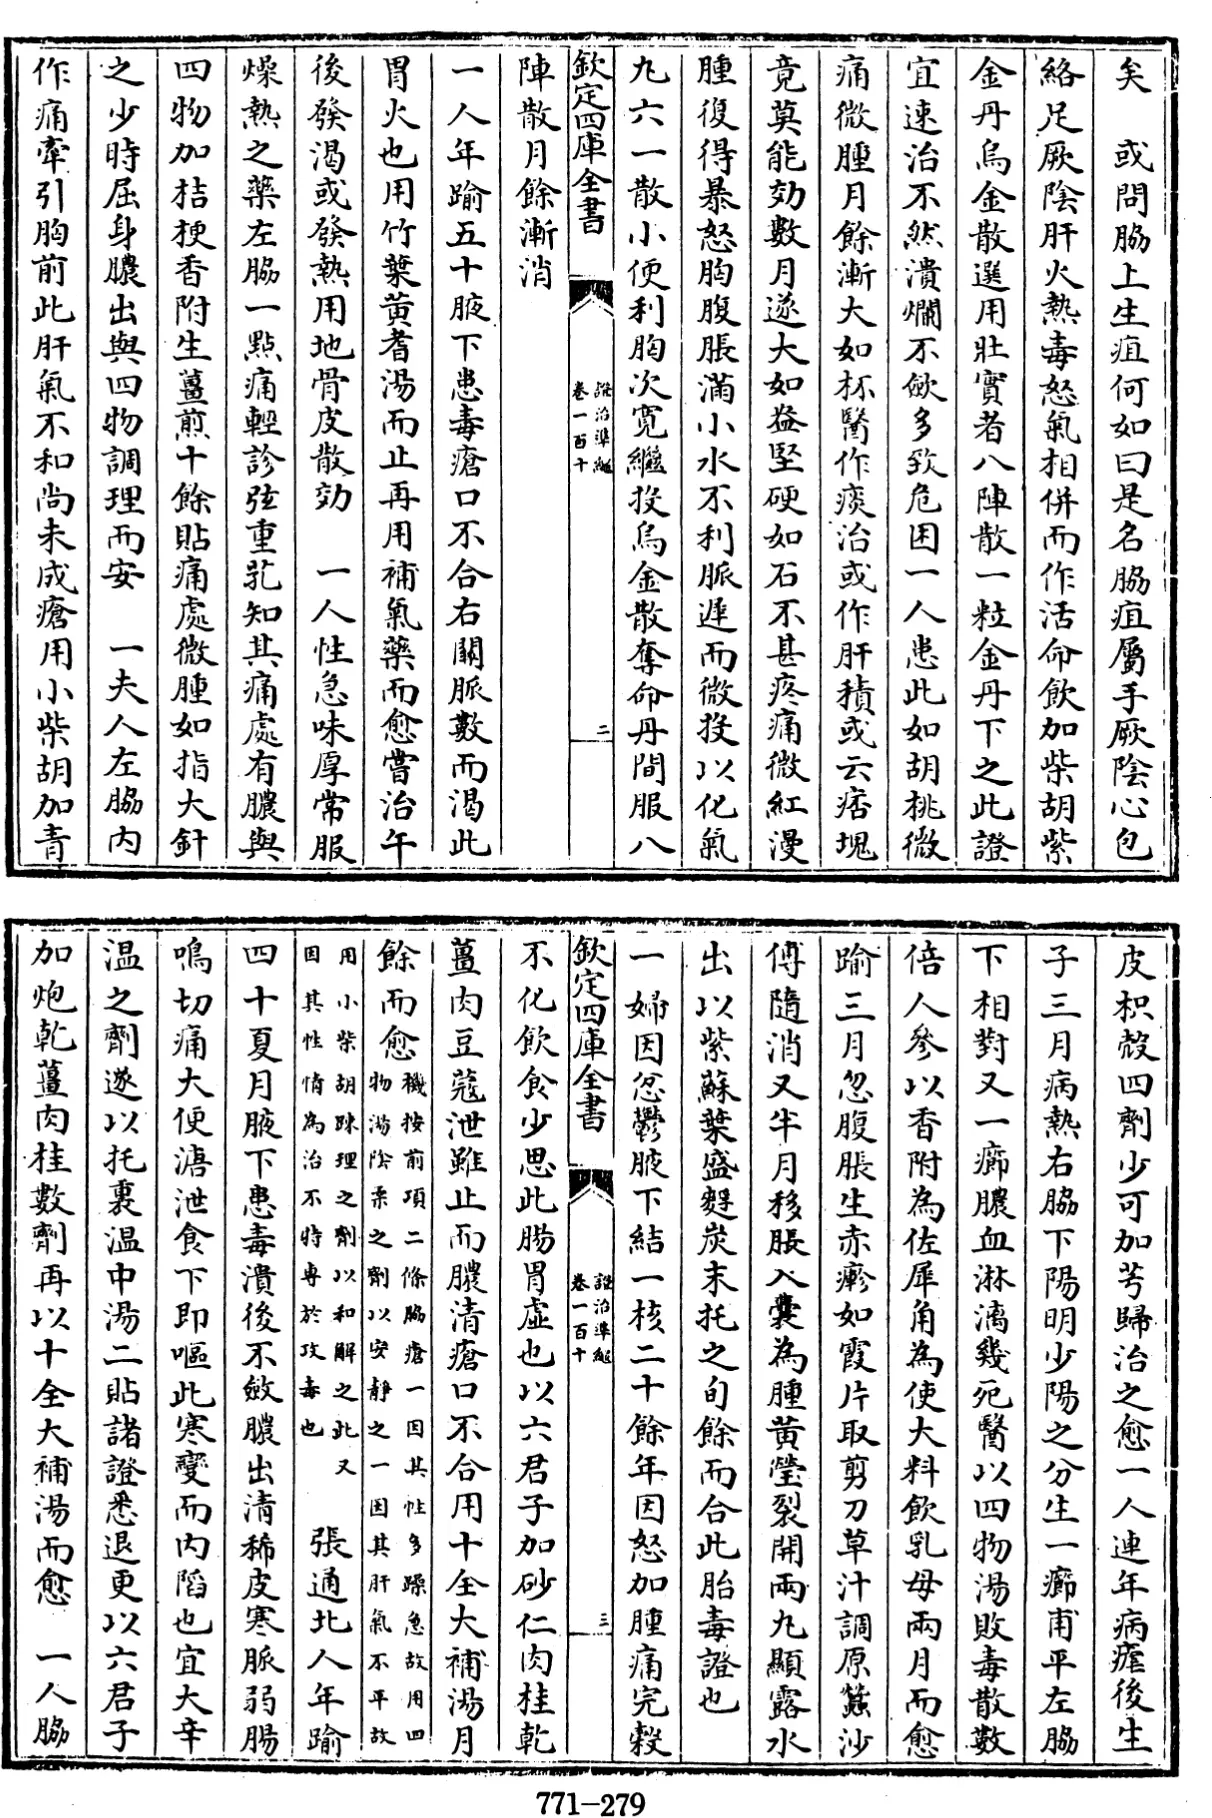 矣　或問脇上生疽何如曰是名脇疽屬手厥陰心包
絡足厥陰肝火熱毒怒氣相併而作活命飲加柴胡紫
金丹烏金散選用壯實者八陣散一粒金丹下之此證
宜速治不然潰爛不歛多致危困一人患此如胡桃微
痛微腫月餘漸大如杯醫作痰治或作肝積或云痞塊
竟莫能効數月遂大如盎堅硬如石不甚疼痛微紅漫
腫復得暴怒胸腹脹滿小水不利脈遲而微投以化氣
丸六一散小便利胸次寛繼投烏金散奪命丹間服八
欽定四庫全書
證治準繩
卷一百十
二
陣散月餘漸消
一人年踰五十腋下患毒瘡口不合右關脈數而渴此
胃火也用竹葉黄耆湯而止再用補氣藥而愈嘗治午
後發渴或發熱用地骨皮散効　一人性急味厚常服
燥熱之藥左脇一㸃痛輕診弦重芤知其痛處有膿與
四物加桔梗香附生薑煎十餘貼痛處微腫如指大針
之少時屈身膿出與四物調理而安　一夫人左脇内
作痛牽引胸前此肝氣不和尚未成瘡用小柴胡加青
皮枳殼四劑少可加芎歸治之愈一人連年病瘧後生
子三月病熱右脇下陽明少陽之分生一癤甫平左脇
下相對又一癤膿血淋漓幾死醫以四物湯敗毒散數
倍人參以香附為佐犀角為使大料飲乳母兩月而愈
踰三月忽腹脹生赤瘮如霞片取剪刀草汁調原蠶沙
傅隨消又半月移脹入囊為腫黄瑩裂開兩丸顯露水
出以紫蘇葉盛麩炭末托之旬餘而合此胎毒證也
一婦因忿鬱腋下結一核二十餘年因怒加腫痛完穀
欽定四庫全書
證治準繩
卷一百十
三
不化飲食少思此腸胃虚也以六君子加砂仁肉桂乾
薑肉豆蔻泄雖止而膿清瘡口不合用十全大補湯月
餘而愈機按前項二條脇瘡一因其性多躁急故用四
物湯隂柔之劑以安靜之一因其肝氣不平故
用小柴胡踈理之劑以和解之此又
因其性情為治不特專於攻毒也　張通北人年踰
四十夏月腋下患毒潰後不斂膿出清稀皮寒脈弱腸
鳴切痛大便溏泄食下即嘔此寒變而内陷也宜大辛
温之劑遂以托裏温中湯二貼諸證悉退更以六君子
加炮乾薑肉桂數劑再以十全大補湯而愈　一人脇
771-279